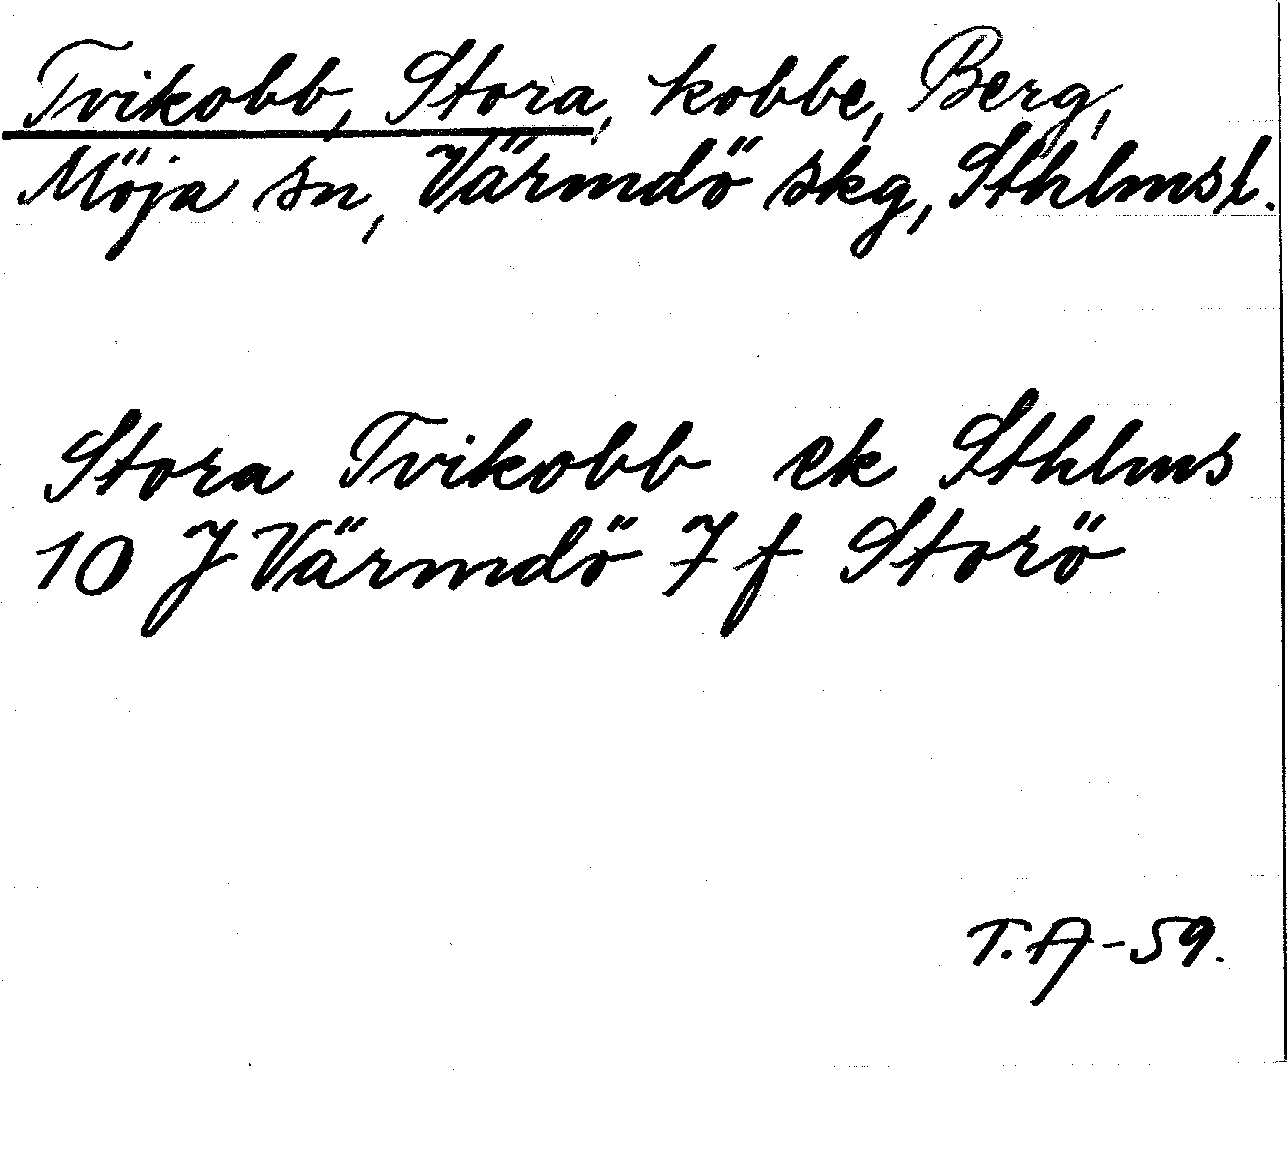 Tvikobb, Stora, kobbe, Berg,
Möja sn, Värmdö skg, Sthlmsl.
Stora Tvikobb ek Sthlms
10 J Värmdö 7 f Storö
T.A-59.